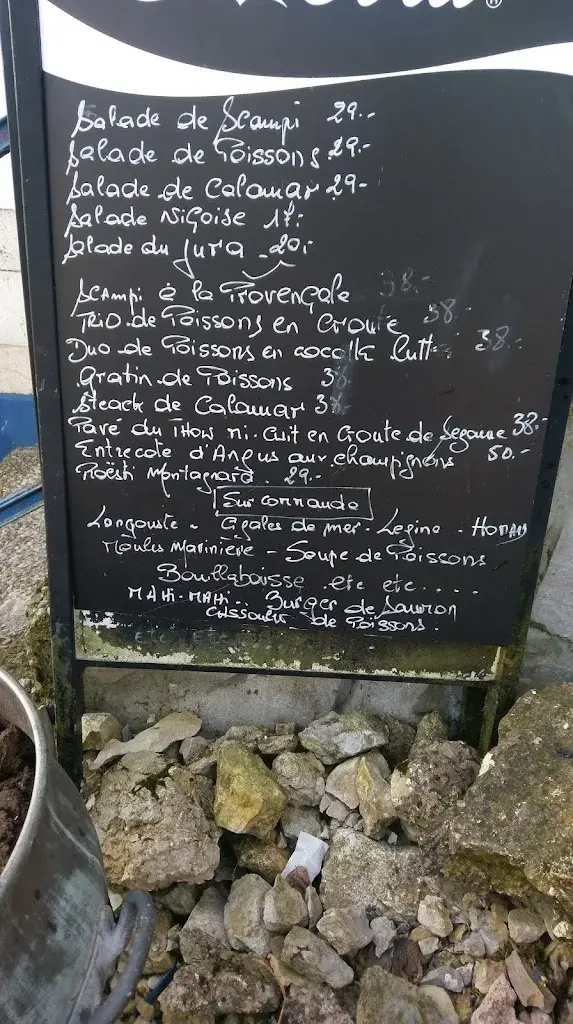 Salade de Scampi 29.-
Salade de Poissons 29.-
Salade de Calamar 29-
Salade Niçoise 17.-
Salade du Jura - 20.-
Scampi à la Provençale 38.-
TRIO de Poissons en Croute 38.-
Duo de Poissons en cocotte lutt 38.-
Gratin de Poissons
Steack de Calamar
Pavé du THON mi-cuit en Croute de Sesame 38.-
Entrecote d'Angus aux champignons 50.-
Roësti Montagnard. 29.-
Sur commande
Langouste - Cigales de mer - Legine - HOMARD
Moules Marinière - Soupe de Poissons
Bouillabaisse etc etc....
MAHI-MAHI.. Burger de Saumon
Cassoulet de Poissons.